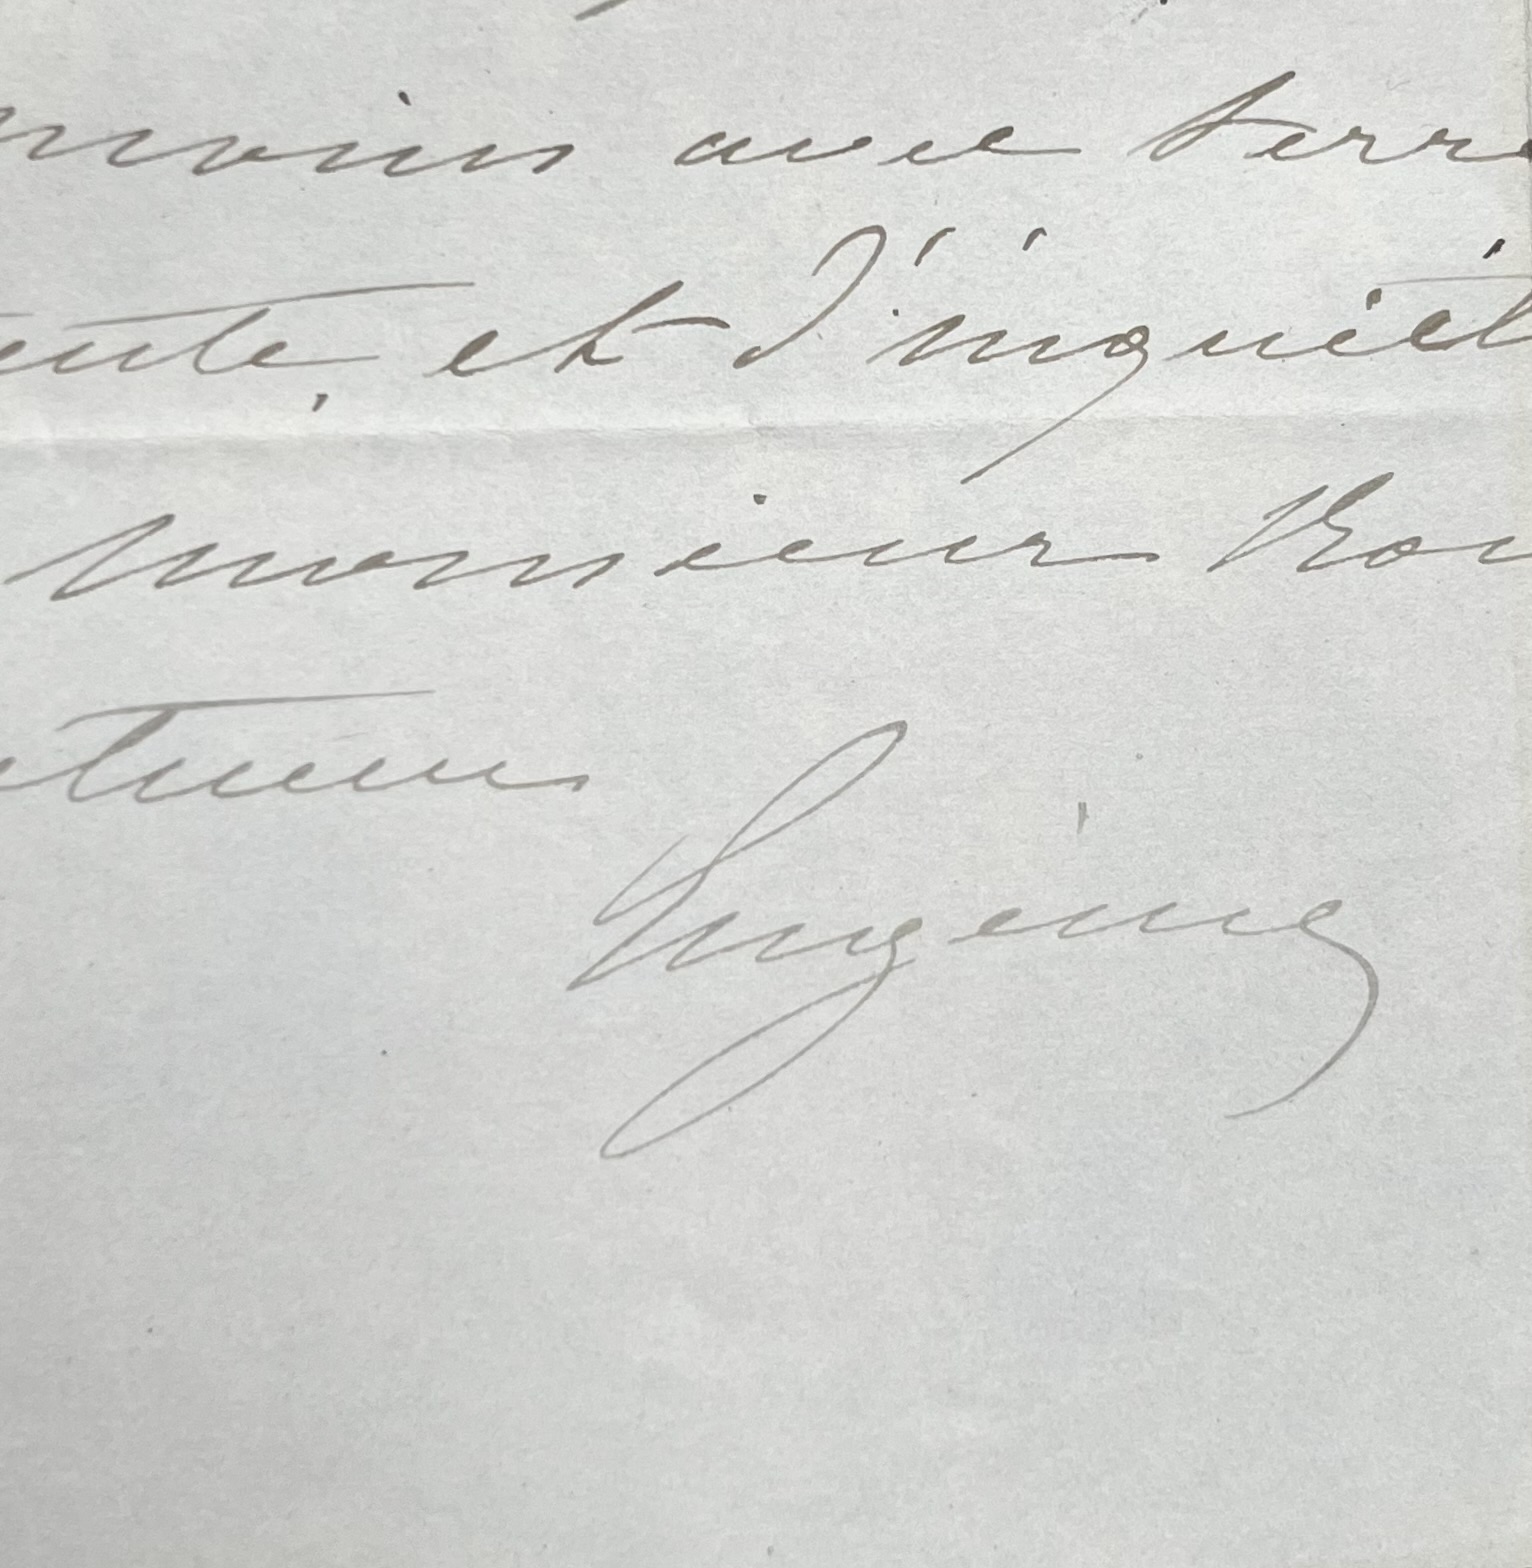 moins avec terre
ente, et d'inquiét
monsieur Rou
Eugénie